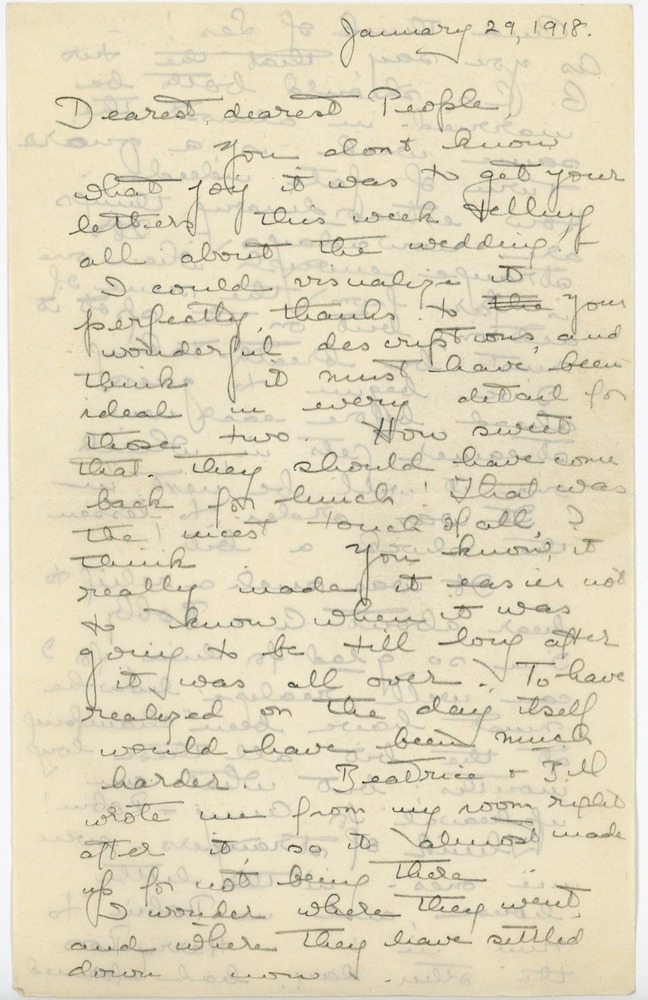 January 29, 1918.
Dearest, dearest People,
You don't know
what joy it was to get your
letters this week telling
all about the wedding!
I could visualize it
perfectly, thanks to the your
wonderful descriptions, and
think it must have been
ideal in every detail for
those two. How sweet
that they should have come
back for lunch! That was
the nicest touch of all, I
think. You know, it
really made it easier not
to know when it was
going to be till long after
it was all over. To have
realized on the day itself
would have been much
harder. Beatrice + Bill
wrote me from my room right
after it, so it almost made
up for not being there.
I wonder where they went,
and where they have settled
down now.